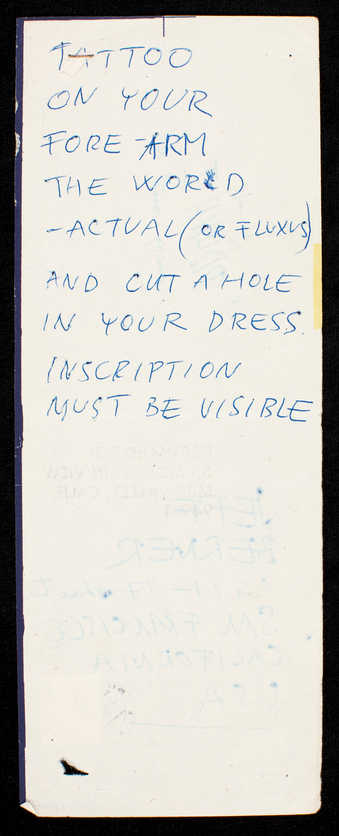 TATTOO
ON YOUR
FORE-ARM
THE WORD
-ACTUAL (OR FLUXUS)
AND CUT A HOLE
IN YOUR DRESS.
INSCRIPTION
MUST BE VISIBLE